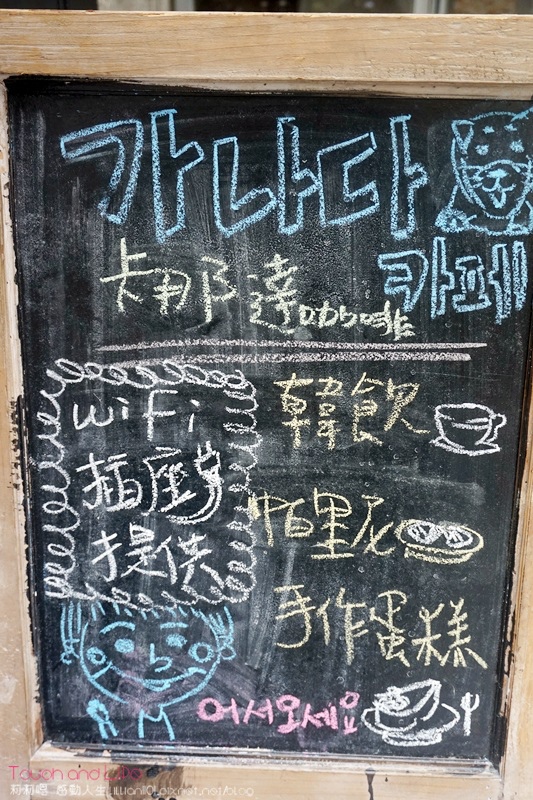 가나다
카페
卡那達咖啡
wiFi
插座
提供
韓飲
帕里尼
手作蛋糕
어서오세요
Touch and Love
莉莉嗯 感動人生 lillian110.pixnet.net/blog